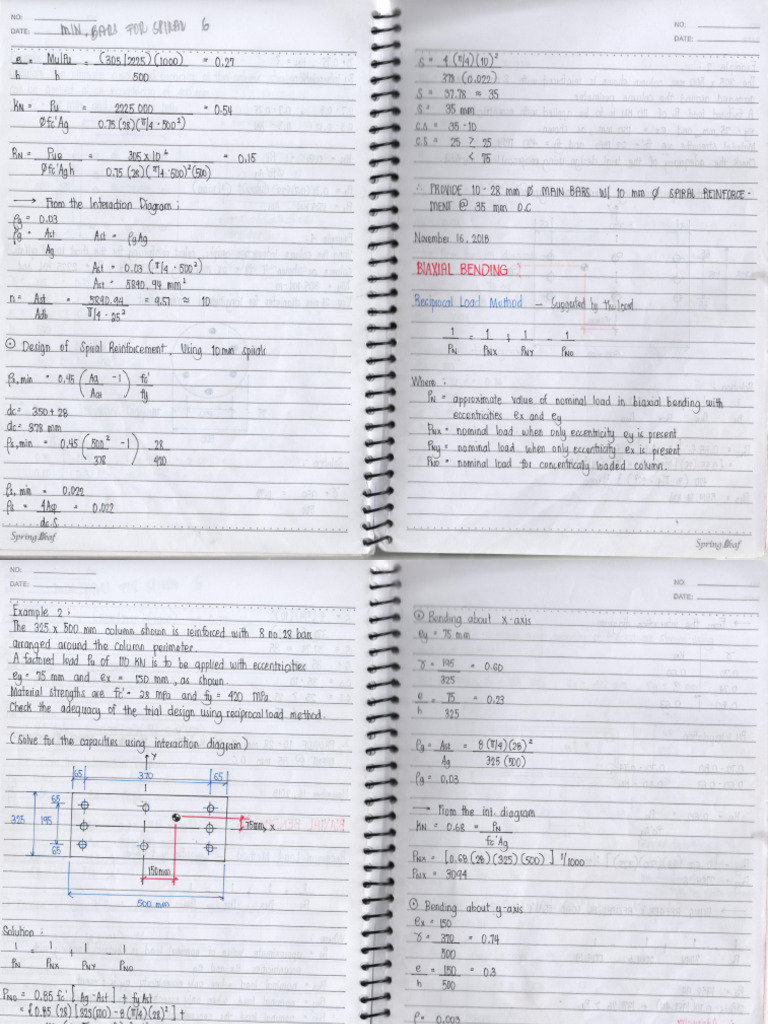 NO:
DATE:
MIN. BARS FOR SPIRAL 6
e/h = Mu/Pu / h = (305/2225)(1000) / 500 = 0.27
KN = Pu / Øfc'Ag = 2225 000 / 0.75(28)(π/4 · 500²) = 0.54
RN = Pue / Øfc'Agh = 305 x 10⁶ / 0.75(28)(π/4 · 500)²(500) = 0.15
→ From the Interaction Diagram :
ρg = 0.03
ρg = Ast / Ag Ast = ρgAg
Ast = 0.03 (π/4 · 500²)
Ast = 5890.94 mm²
n = Ast / Adb = 5890.94 / π/4 · 25² = 9.57 ≈ 10
⊙ Design of Spiral Reinforcement, Using 10mm spirals
ρs,min = 0.45 (Ag / Ach - 1) fc' / fy
dc = 350 + 28
dc = 378 mm
ρs,min = 0.45 (500² / 378 - 1) 28 / 420
ρs,min = 0.022
ρs = 4Asp / dc·S = 0.022
Spring Leaf
NO:
DATE:
S = 4(π/4)(10)² / 378 (0.022)
S = 37.78 ≈ 35
S = 35 mm
C.S = 35 - 10
C.S = 25 ≥ 25
< 75
∴ PROVIDE 10 - 28 mm Ø MAIN BARS W/ 10 mm Ø SPIRAL REINFORCE-
MENT @ 35 mm O.C
November 16, 2018
BIAXIAL BENDING :
Reciprocal Load Method – Suggested by the load
1/PN = 1/PNX + 1/PNY - 1/PNO
Where :
PN = approximate value of nominal load in biaxial bending with
eccentricities ex and ey
PNX = nominal load when only eccentricity ey is present
PNY = nominal load when only eccentricity ex is present
PNO = nominal load for concentrically loaded column.
Spring Leaf
NO:
DATE:
Example 2 :
The 325 x 500 mm column shown is reinforced with 8 no. 28 bars
arranged around the column perimeter.
A factored load Pu of 110 KN is to be applied with eccentricities
ey = 75 mm and ex = 150 mm, as shown.
Material strengths are fc' = 28 mpa and fy = 420 MPa.
Check the adequacy of the trial design using reciprocal load method.
(Solve for the capacities using interaction diagram)
y
65 370 65
65
325 195
75mm x
65
150mm
500 mm
Solution :
1/PN = 1/PNX + 1/PNY - 1/PNO
PNO = 0.85 fc' [Ag - Ast] + fy Ast
= {0.85 (28) [325(500) - 8(π/4)(28)²] +
NO:
DATE:
⊙ Bending about x-axis
ey = 75 mm
γ = 195 / 325 = 0.60
e/h = 75 / 325 = 0.23
ρg = Ast / Ag = 8(π/4)(28)² / 325 (500)
ρg = 0.03
→ From the int. diagram
KN = 0.68 = PN / fc'Ag
PNX = [0.68 (28)(325)(500)] 1/1000
PNX = 3094
⊙ Bending about y-axis
ex = 150
γ = 370 / 500 = 0.74
e/h = 150 / 500 = 0.3
ρ = 0.003